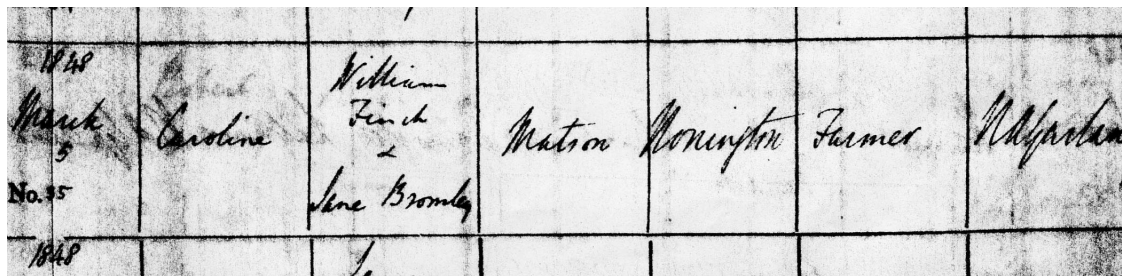 1848
March
5
No. 35
Caroline
William
Finch
&
Jane Bromley
Matson
Nonington
Farmer
1848